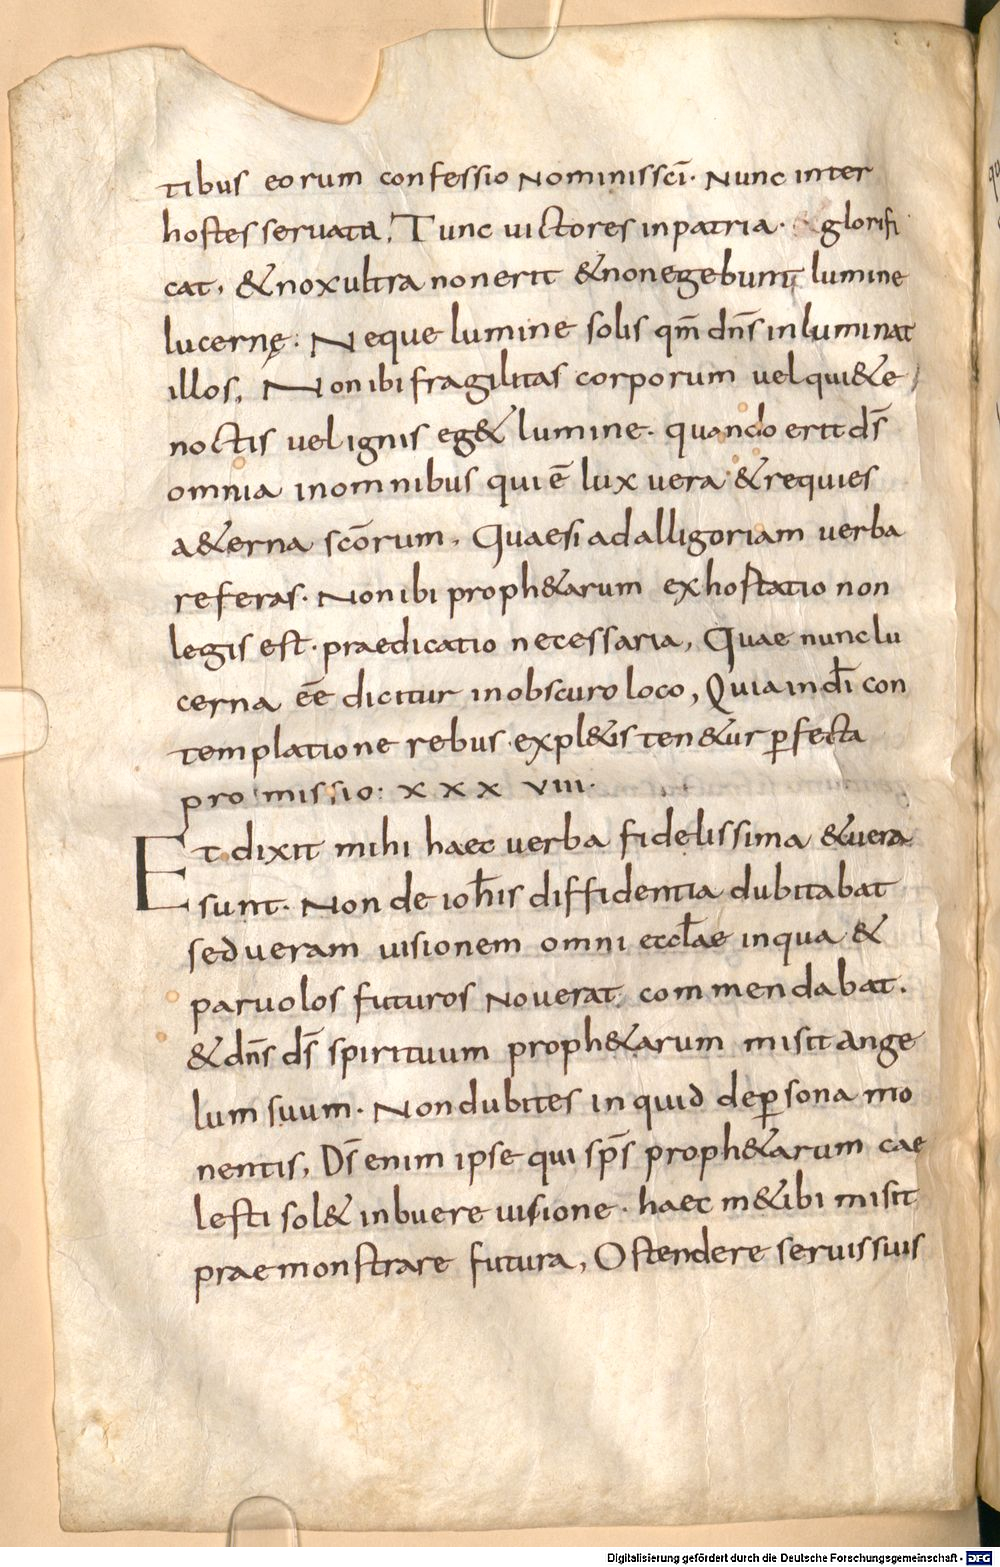 tibus eorum confessio nominis sc̄i. Nunc inter
hostes seruata, Tunc uictores in patria. & glorifi
cat. & nox ultra non erit & non egebunt lumine
lucernę. Neque lumine solis qm̄ dn̄s inluminat
illos, Non ibi fragilitas corporum uel qui&e
noctis uel ignis eg& lumine. quando erit ds̄
omnia in omnibus qui ē lux uera & requies
a&erna sc̄orum, Quae si ad alligoriam uerba
referas. Non ibi proph&arum exhostatio non
legis est. praedicatio necessaria, Quae nunc lu
cerna eē dicitur in obscuro loco, Quia in dī con
templatione rebus expl&is ten&ur ꝑfecta
promissio: xxxviii.
Et dixit mihi haec uerba fidelissima & uera
sunt. Non de ioħis diffidentia dubitabat
sed ueram uisionem omni eccl̄ae in qua &
paruolos futuros nouerat commendabat.
& dn̄s ds̄ spirituum proph&arum misit ange
lum suum. Non dubites inquid de ꝑsona mo
nentis, Ds̄ enim ipse qui sps̄ proph&arum cae
lesti sol& inbuere uisione. haec m& ibi misit
praemonstrare futura, Ostendere seruis suis
Digitalisierung gefördert durch die Deutsche Forschungsgemeinschaft - DFG